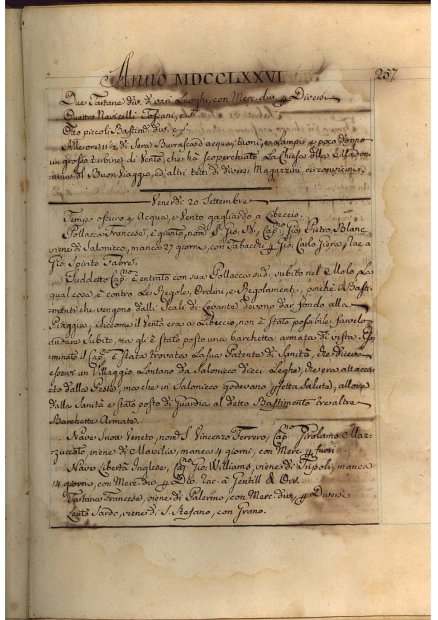 Anno MDCCLXXVI
257
Due Tartane div. di vari Luoghi, con Merc. div. p Diversi
Quattro Navicelli Toscani,
Otto piccoli Bastim. div.
All'ore 11½ di Sera Burrascà d'acqua, tuoni, e lampi, e poco doppo
un grosso turbine di Vento, che hà scoperchiato la Chiesa della Madon-
nina del Buon Viaggio, ed altri tetti di diversi Magazzini circonvicini.
Venerdì 20 Settembre
Tempo oscuro p Acqua, e Vento gagliardo a Libeccio.
Pollacca Francese, è quato, nom. S. Gio. B., Cap.no Gio. Pietro Blanc,
viene di Salonicco, manca 27 giorni, con Tabacchi p Gio. Carlo
Gio. Spirito Fabre.
Suddetto Cap.no è entrato con sua Pollacca subito nel Molo, la
qual cosa è contro le Regole, Ordini, e Regolamenti, poichè i Basti-
menti che vengono dalli Scali di Levante devono dar fondo alla
Piaggia; Siccome il Vento era a Libeccio, non è stato possibile farvelo
andare subito, ma gli è stato posto una barchetta armata di vista.
minato il Cap.no è stata trovata la sua Patente di Sanità, che diceva
esservi un Villaggio Lontano da Salonicco dieci Leghe, che era attacca-
to dalla Peste, ma che in Salonicco godevano pfetta Salute, allora
dalla Sanità è stato posto di Guardia al detto Bastimento tre altre
Barchette Armate.
Nave Snow Veneto, nom. S. Vincenzo Ferrero, Cap.no Girolamo Mar-
zuccato, viene di Marsilia, manca 4 giorni, con Merc. p fuori
Nave Libertà Inglese, Cap. Gio. Williams, viene di Tripoli, manca
14 giorni, con Merc. div. p Div. Rac. a Gentill & Orr.
Tartana Francese, viene di Palermo, con Merc. div. p Diversi
Leuto Sardo, viene di S. Stefano, con Grano.